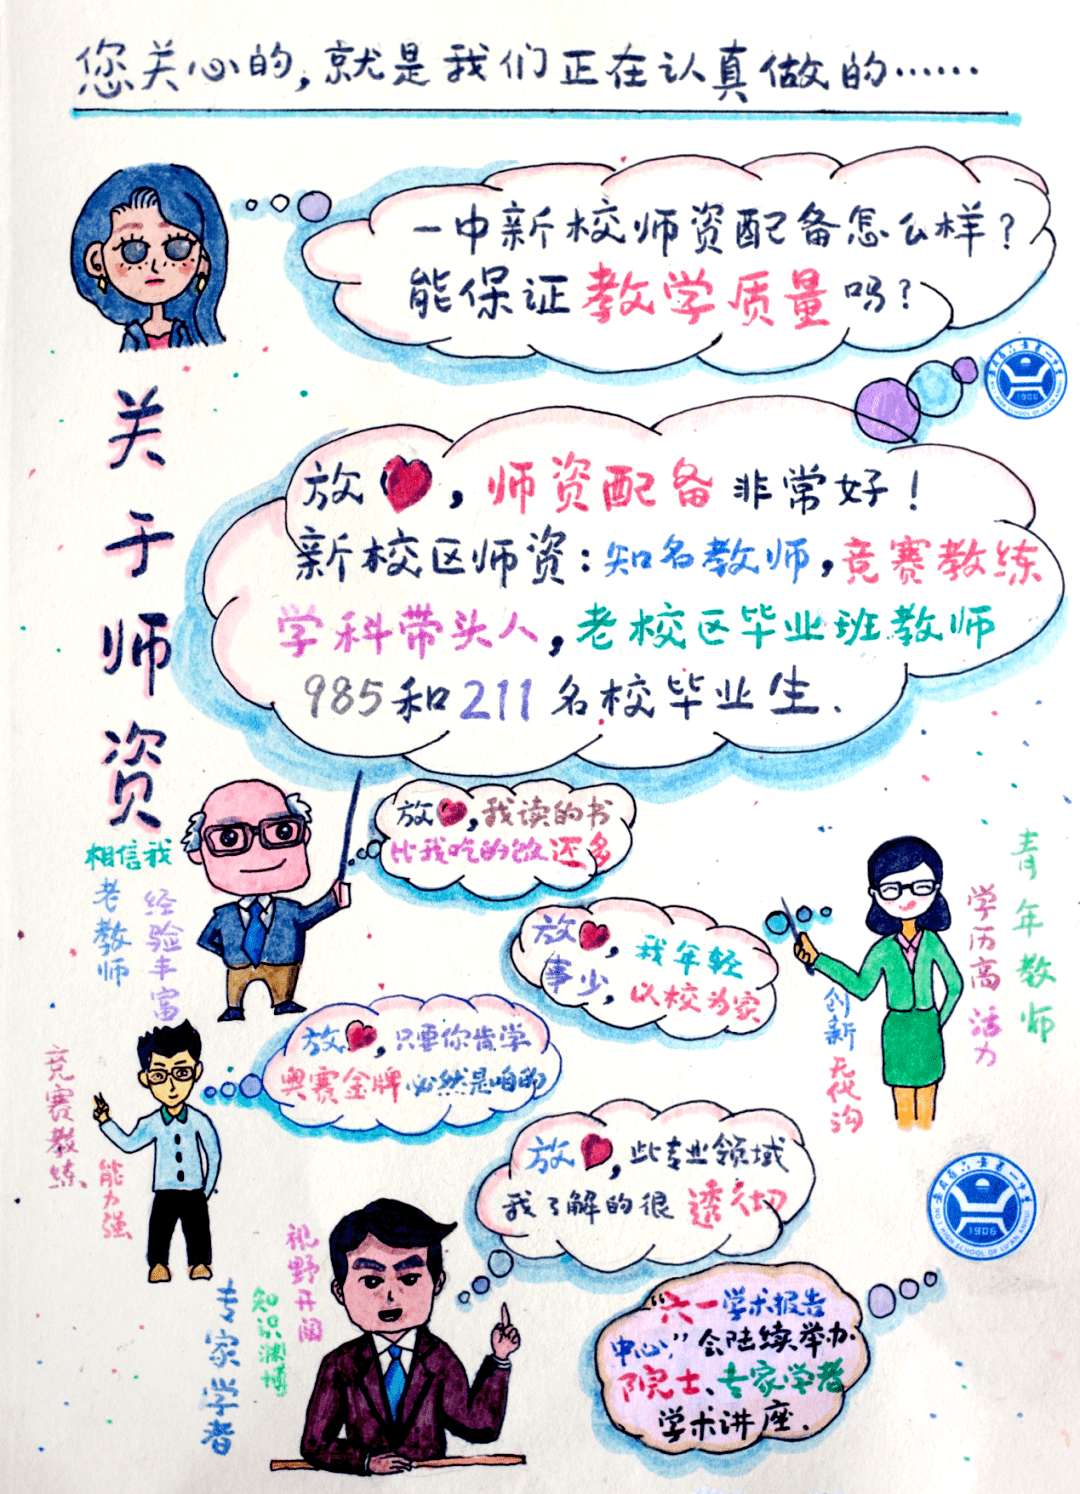 您关心的,就是我们正在认真做的……
一中新校师资配备怎么样?
能保证教学质量吗?
关于师资
放,师资配备非常好!
新校区师资:知名教师,竞赛教练
学科带头人,老校区毕业班教师
985和211名校毕业生.
放,我读的书
比我吃的饭还多
相信我
老教师
经验丰富
放,我年轻
事少,以校为家
青年教师
学历高活力
创新无代沟
放,只要你肯学
奥赛金牌必然是咱的
竞赛教练
能力强
放,些专业领域
我了解的很透彻
视野开阔
知识渊博
专家学者
"六一学术报告
中心"会陆续举办
院士、专家学者
学术讲座.
安徽省六安第一中学
1906
NO.1 HIGH SCHOOL OF LU'AN ANHUI
安徽省六安第一中学
1906
NO.1 HIGH SCHOOL OF LU'AN ANHUI